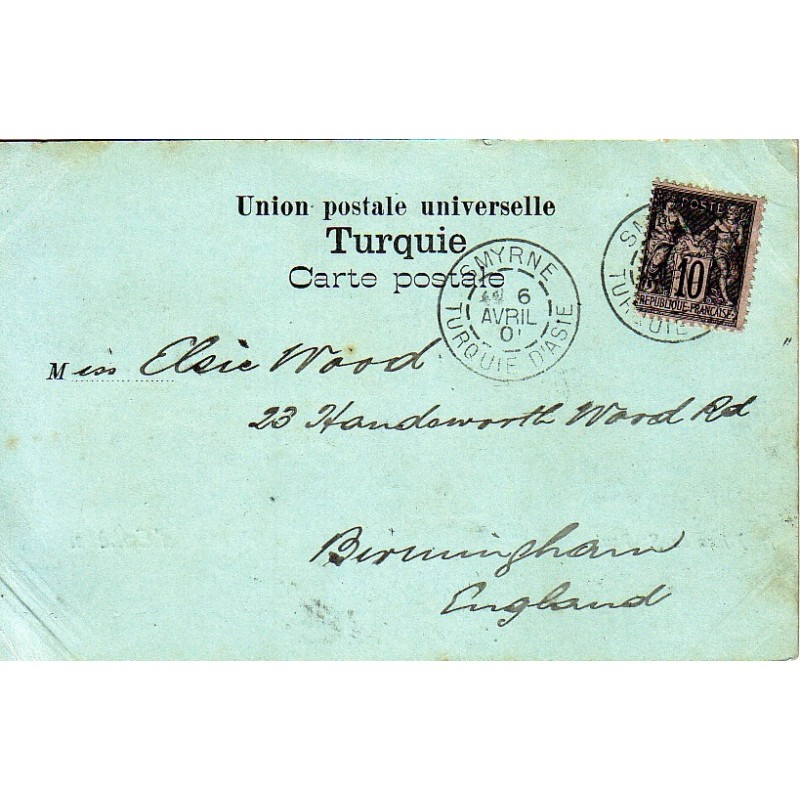 Union postale universelle
Turquie
Carte postale
POSTE
10
REPUBLIQUE FRANCAISE
SMYRNE
6
AVRIL
01
TURQUIE D'ASIE
SM
TURQUIE
Miss Elsie Wood
23 Handsworth Wood Rd
Birmingham
England